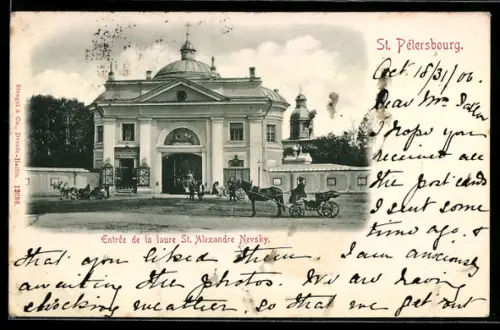 St. Pétersbourg.
Oct. 18/31/06.
Dear Mr
I hope you
received all
the post cards
I sent some
time ago, &
Entrée de la laure St. Alexandre Nevsky.
that you liked them. I am anxiously
awaiting the photos. We are having
shocking weather, so that we get out
Stengel & Co., Dresde-Berlin. 12086.